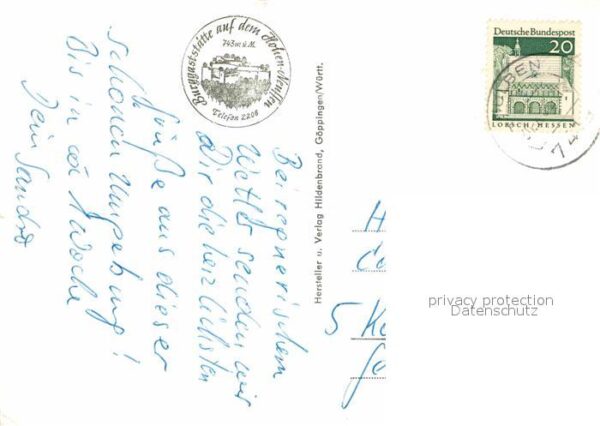 Burggaststätte auf dem Hohen-Neuffen
743 m ü. M.
Telefon 2206
Deutsche Bundespost
20
LORSCH/HESSEN
Bei regnerischem
Wetter senden wir
Dir die herzlichsten
Grüße aus dieser
schönen Umgebung!
Bis in der Woche
Dein Sandro
Hersteller u. Verlag Hildenbrand, Göppingen/Württ.
H
5 K
privacy protection
Datenschutz